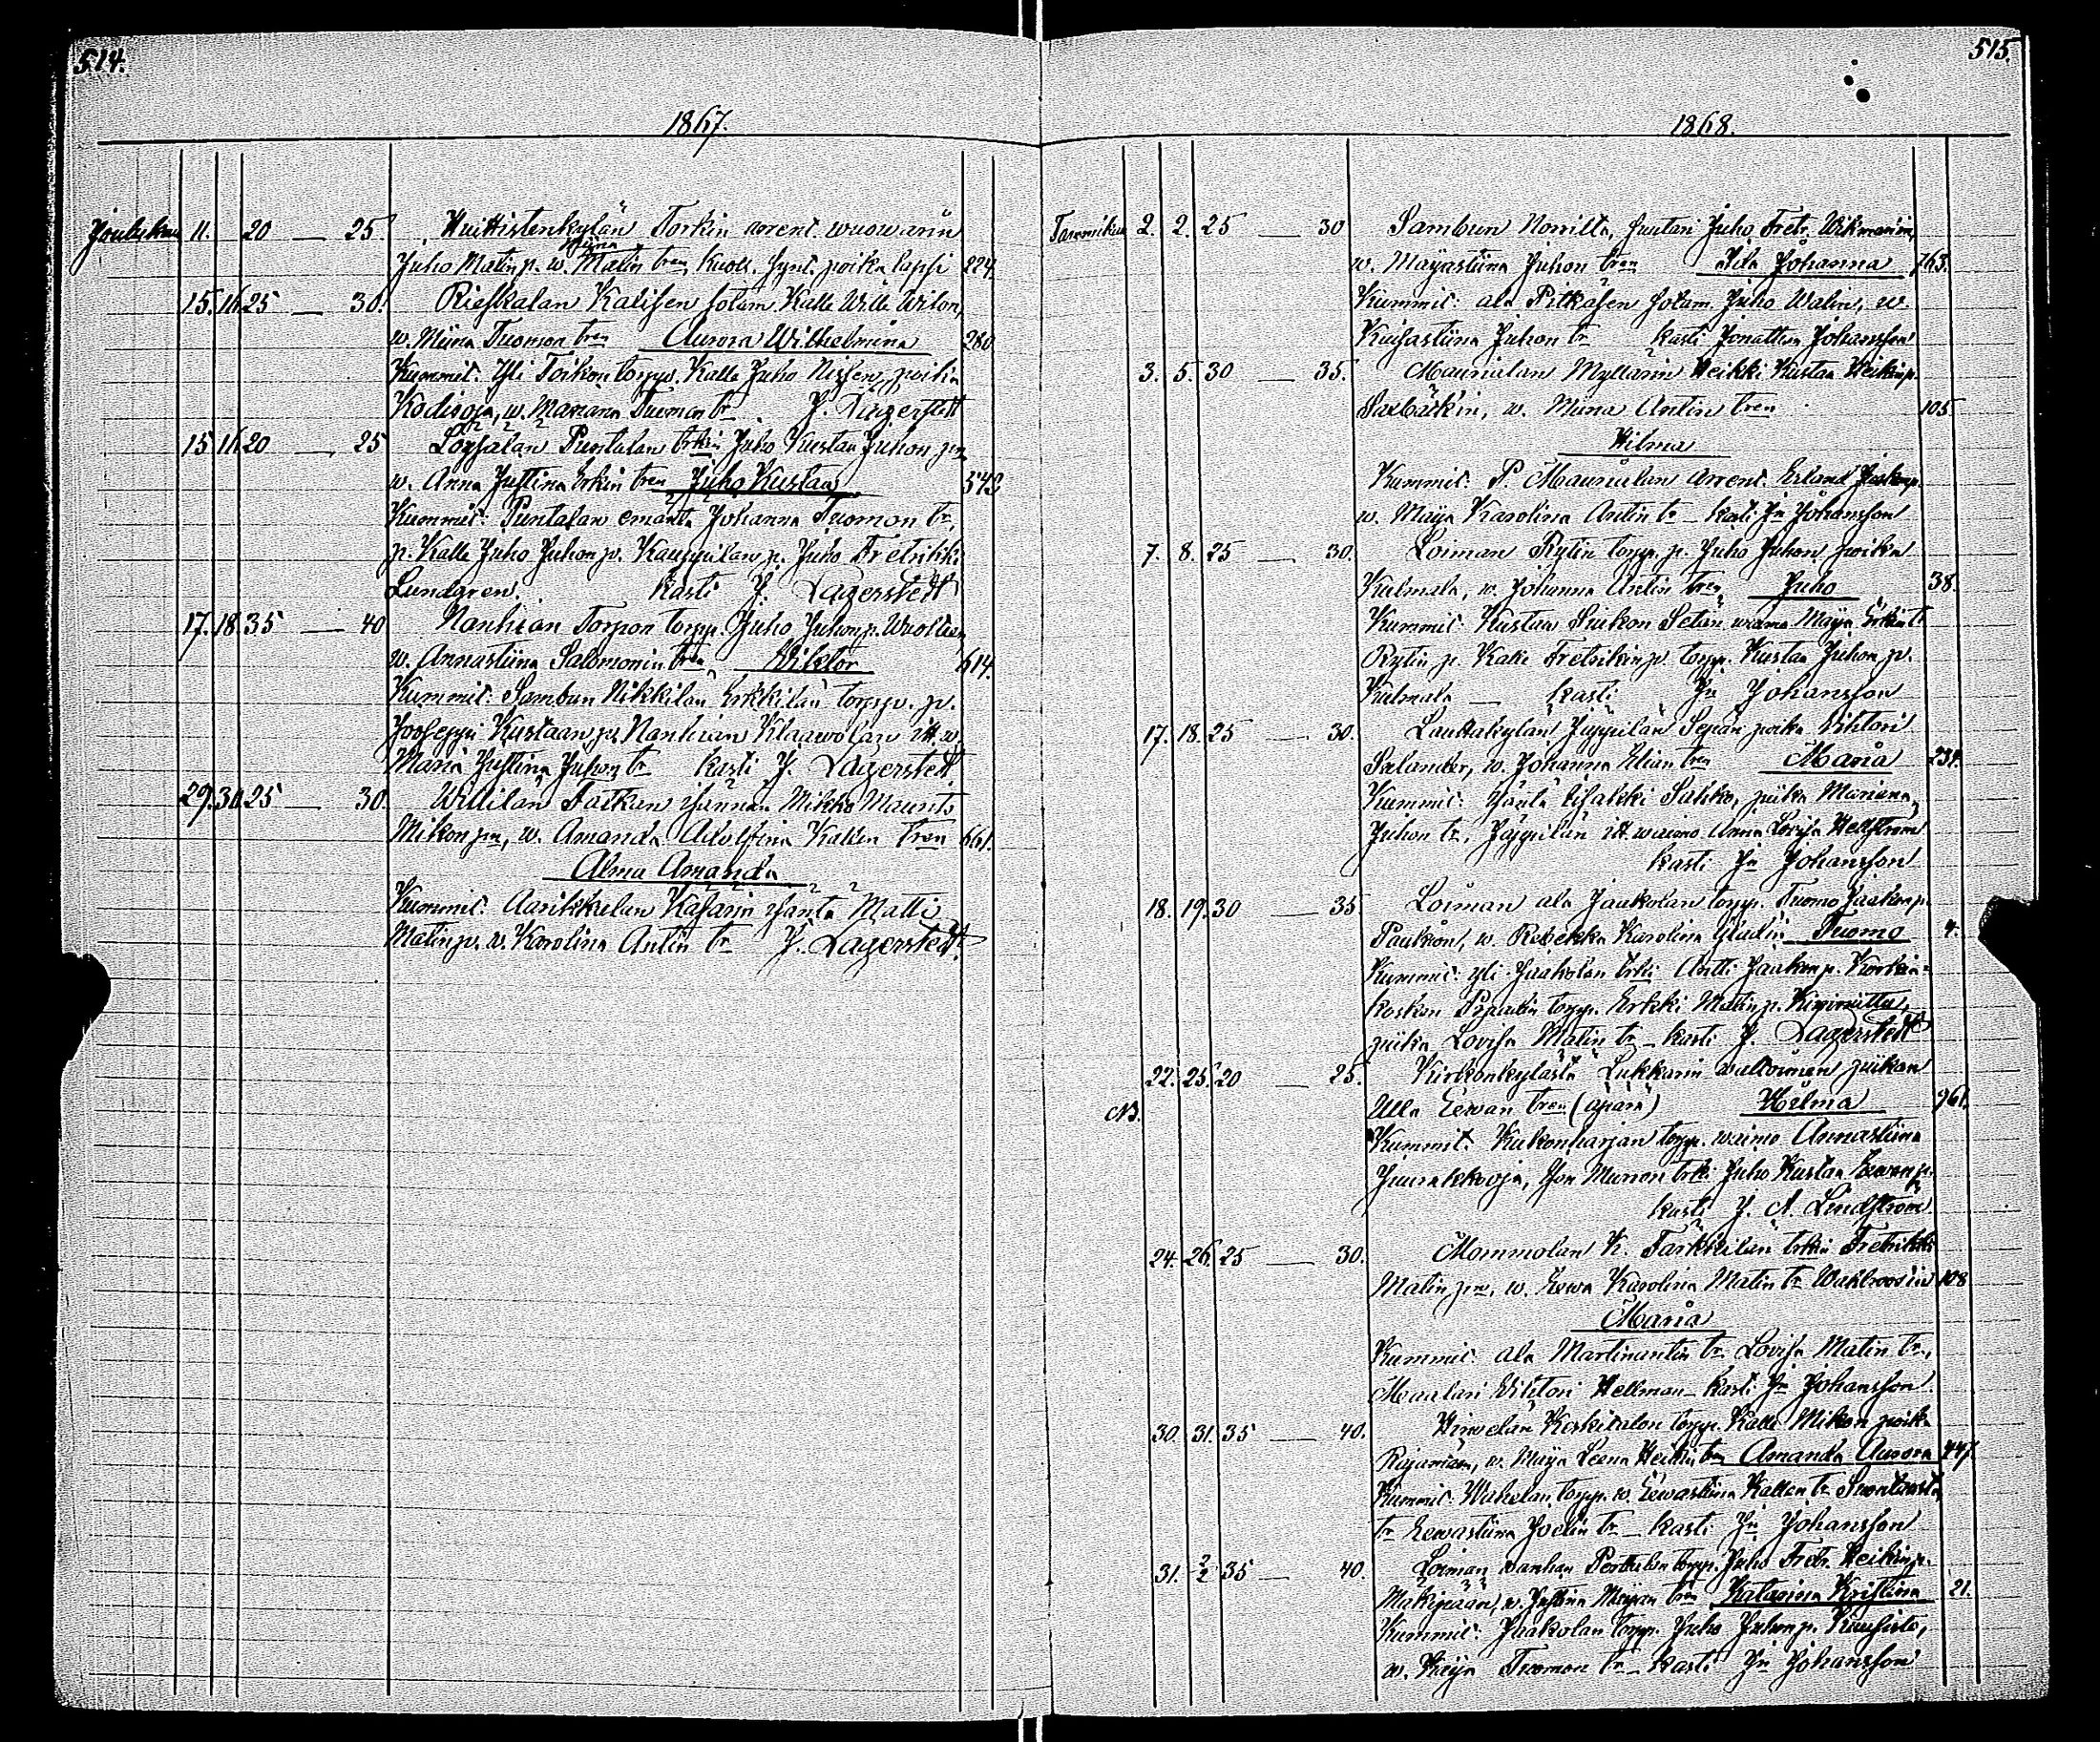 514.
1867.
Joulukuu 11. 20 — 25. Huittistenkylän Torkin arent. wuowarin
Miina
Juho Matinp. w. Matin tren kuoll. synt. poika lapsi 224.
15. 16. 25 — 30. Rieskalan Kalisen sotam. Kalle Wille Wilon,
w. Miina Tuomon tren Aurora Wilhelmina 280
Kummit: Yli Toikon torpp. Kalla Juho Nissen poika
Kodisoja, w. Mariana Tuomon tr J. Lagerstedt
15. 16. 20 — 25 Löysälän Puntalan trkin Juho Kustaa Juhon pn
w. Anna Justina Erkin tren Juho Kustaa 543
Kummit: Puntalan emäntä Johanna Tuomon tr,
p. Kalle Juho Juhon p. Kauppilan p. Juho Fretrikki
Lundgren. Kasti J. Lagerstedt
17. 18. 35 — 40 Nanhian Torpon torpp. Juho Juhon p. Wuolteen
w. Annastiina Salomonin tren Wiktor 614.
Kummit: Sambun Nikkilän Erkkilän torpp. p.
Jooseppi Kustaan p. Nanhian Klaawolan itt. w.
Maria Justina Juhon tr kasti J. Lagerstedt
29. 30. 25 — 30. Willilän Tatkan isännän Mikko Maurits
Mikon pn, w. Amanda Adolfina Kallen tren 661.
Alma Amanda
Kummit: Aarikkulan Kasarin isäntä Matti
Matin p. w. Karolina Antin tr J. Lagerstedt.
515.
1868.
Tammikuu 2. 2. 25 — 30 Sambun Norrilta, suutari Juho Fretr. Wikmanin,
w. Mayastiina Juhon tren Aila Johanna 763.
Kummit: ala Pitkäsen sotam. Juho Walin, w.
Kaisastiina Juhon tr kasti Jonathan Johansson
3. 5. 30 — 35. Mauriälan Myllärin Heikki Kustaa Heikin p.
Saxbäckin, w. Miina Antin tren 105.
Hilma
Kummit: P. Mauriälan Arrent. Erland Jaakon p.
w. Maija Karolina Antin tr — kasti Jn Johansson
7. 8. 25 — 30. Loiman Rytin torpp. p. Juho Juhon poika
Kulmala, w. Johanna Antin tren Juho 38.
Kummit: Kustaa Siukon Setän waimo Maija Erkin tr
Rytin p. Kalle Fretrikin p. torpp. Kustaa Juhon p.
Kulmala — kasti Jn Johansson
17. 18. 25 — 30. Lauttakylän Jyppilän Sepän poika Wihtori
Salander, w. Johanna Elian tren Maria 234.
Kummit: isäntä Iisakki Sahko, piika Mariana
Juhon tr, Jyppilän itt. waimo Anna Lovisa Hellström
kasti Jn Johansson
18. 19. 30 — 35. Loiman ala Jaakolan torpp. Tuomo Jaakon p.
Paukon, w. Rebekka Karolina Tuomo 4.
Kummit: yli Jaakolan trki Antti Jaakon p. Korkia-
kosken torpp. Erkki Matin p. Kiwiniittu,
piika Lovisa Matin tr — kasti J. Lagerstedt
22. 25. 20 — 25. Kirkonkylästä Lukkarin wuttoimen piikan
NB. Ulla Eewan tren (äpärä) Hilma 961.
Kummit: Kukonharjan torpp. waimo Annastiina
Juurakkooja, Ison Murron trki Juho Kustaa Eewan p.
kasti J. A. Lindström
24. 26. 25 — 30. Mommolan K. Tarkkilan trkin Fretrikki
Matin pn, w. Eewa Karolina Matin tr Wahlroosin 108
Maria
Kummit: ala Martinantin tr. Lovisa Matin tr,
Maalari Wihtori Hellman — kasti Jn Johansson
30. 31. 35 — 40. Hirwelän Keskitalon torpp. Kalle Mikon poika
Rajamäen, w. Maija Leena Heikin tren Amanda Aurora 447.
Kummit: Wahelan, torpp. w. Eewastiina Kallen tr
tr Eewastiina Joelin tr — kasti Jn Johansson
31. 2/2 35 — 40. Loiman wanhan Perttulan torpp. Juho Fretr. Heikin p.
Mäkipään, w. Justiina Maijan tren Katariina Kristiina 21.
Kummit: Jaakolan torpp. Juho Juhon p. Kuusisto,
w. Tuomon tr — kasti Jn Johansson